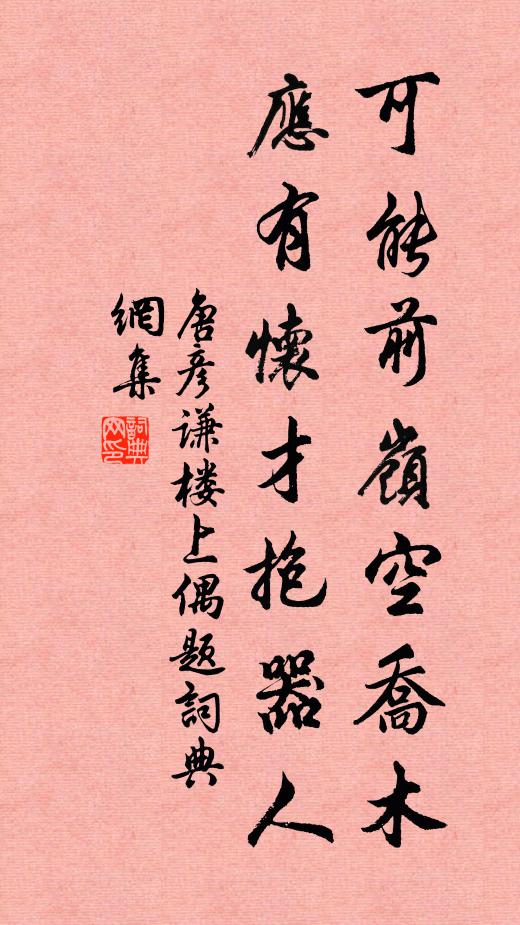 可能前嶺空喬木
應有懷才抱器人
唐彥謙楼上偶题詞典
網集
詞典网印